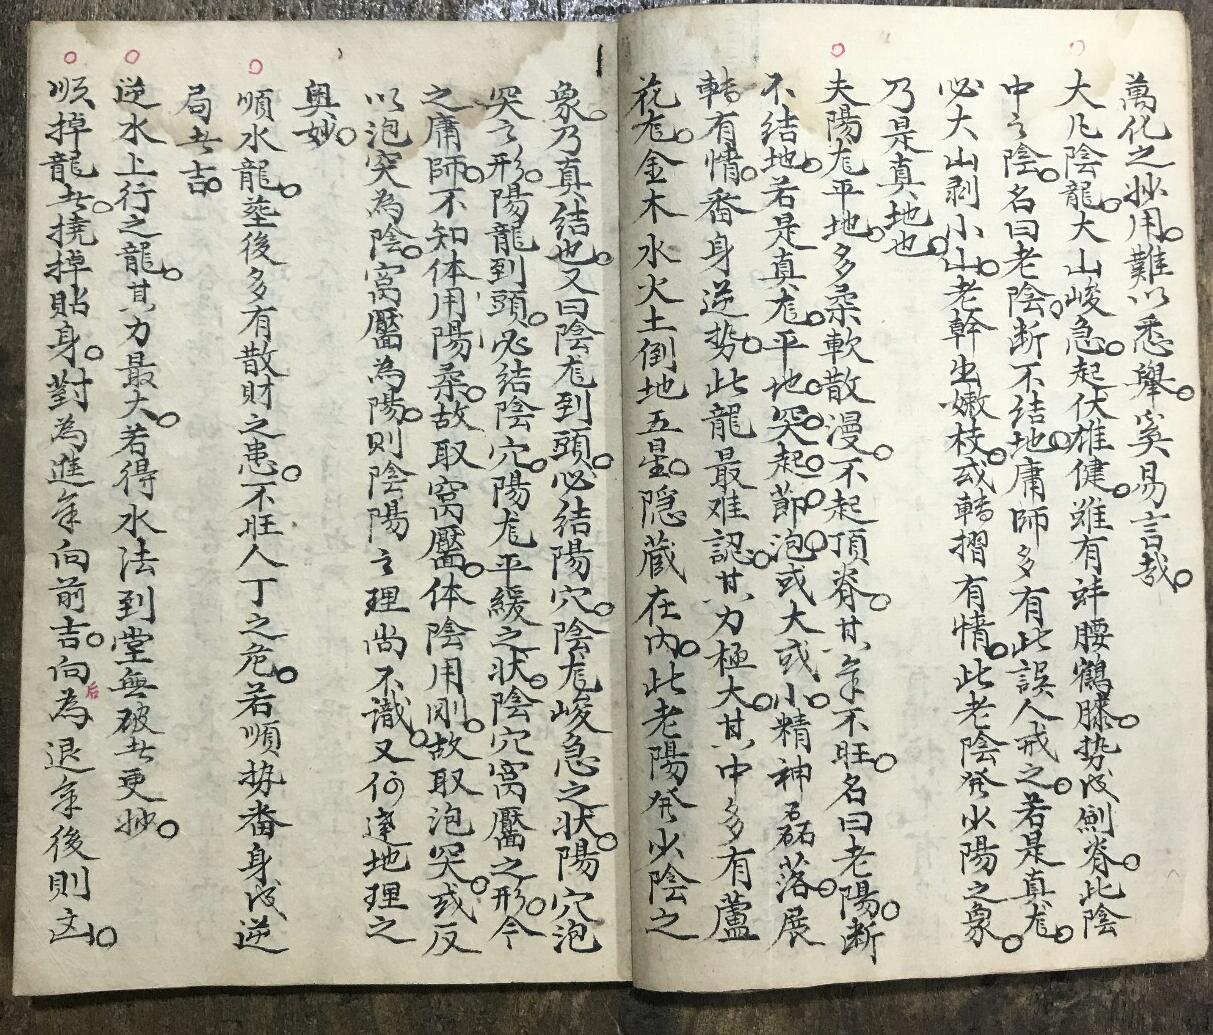 萬化之妙用難以悉舉奚易言哉
大凡陰龍大山峻急起伏雄健雖有蜂腰鶴膝势成劍脊此陰
中之陰名曰老陰断不结地庸師多有此誤人戒之若是真龙
必大山剥小山老幹生嫩枝或轉摺有情此老陰癸少陽之象
乃是真地也
夫陽龙平地多柔軟散漫不起頂脊其氣不旺名曰老陽断
不结地若是真龙平地突起節泡或大或小精神磊落展
轉有情番身逆势此龍最难認其力極大其中多有蘆
花龙金木水火土倒地五星隐藏在内此老陽癸少陰之
象乃真结也又曰陰龙到頭必结陽穴陰龙峻急之状陽穴泡
突之形陽龍到頭必结陰穴陽龙平緩之状陰穴窩靨之形今
之庸師不知体用陽柔故取窩靨体陰用刚故取泡突或反
以泡突為陰窩靨為陽则陰陽之理尚不識又何達地理之
奥妙
順水龍塟後多有散財之患不旺人丁之危若順势番身成逆
局者吉
逆水上行之龍其力最大若得水法到堂無破者更妙
順掉龍者撓掉貼身對為進氣向前吉向后為退氣後則凶